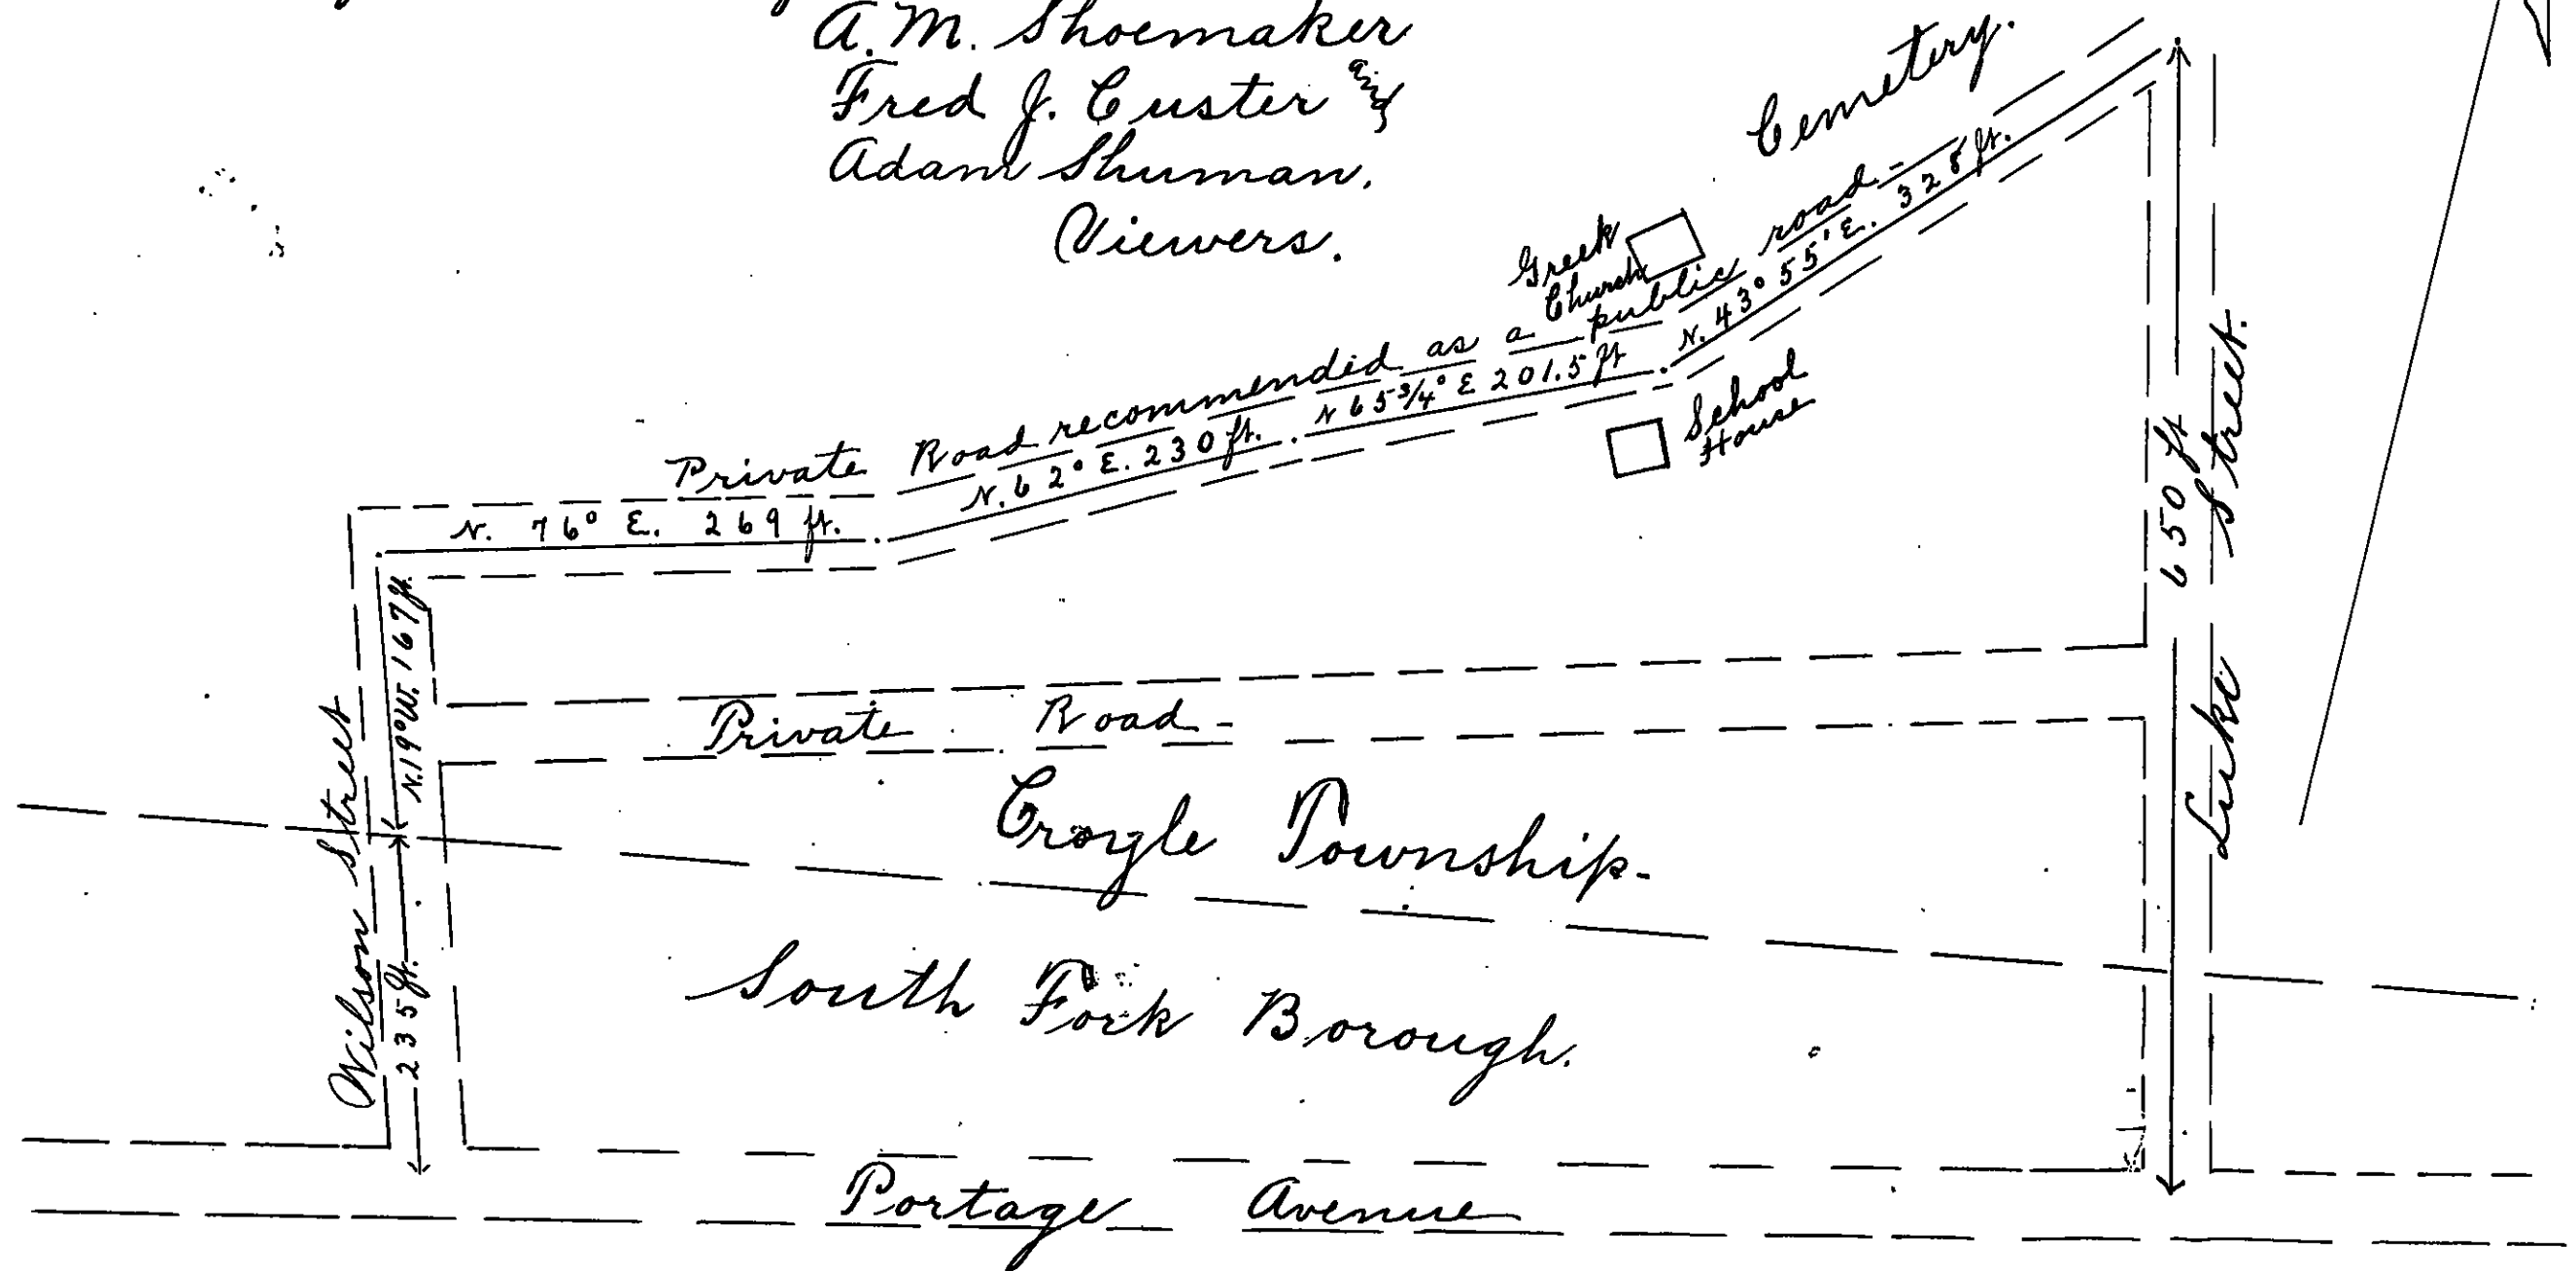 A. M. Shoemaker
Fred J. Custer
Adam Shuman.
Viewers.
Cemetery.
Greek
Church
Private Road recommended as a public road -
N. 76° E. 269 ft.
N. 62° E. 230 ft.
N 65 3/4° E 201.5 ft
N. 43° 55' E. 328 ft.
School
House
650 ft
Luke Street.
N. 19° W. 167 ft.
Wilson Street
235 ft.
Private Road -
Croyle Township.
South Fork Borough.
Portage Avenue